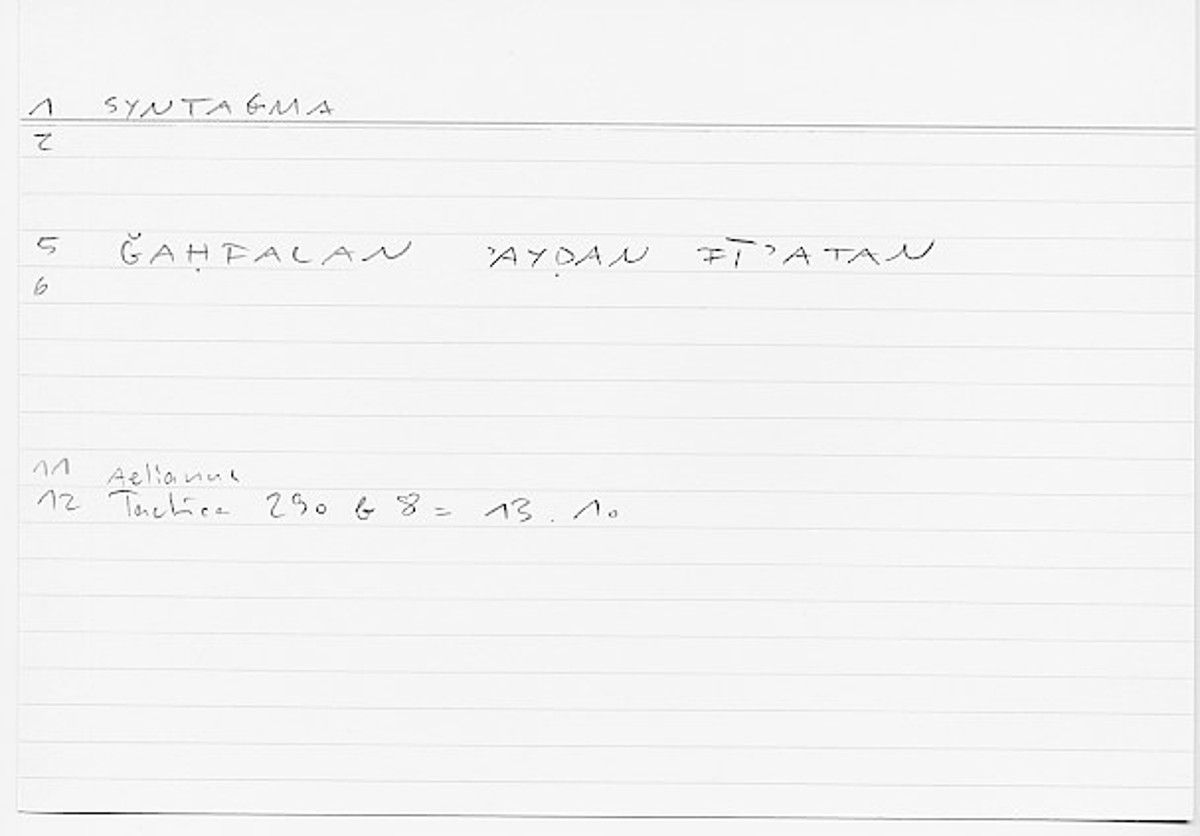 1 SYNTAGMA
2
5 ǦAḤFALAN ʾAYḌAN FĪʾATAN
6
11 Aelianus
12 Tactica 290 G 8 = 13.10